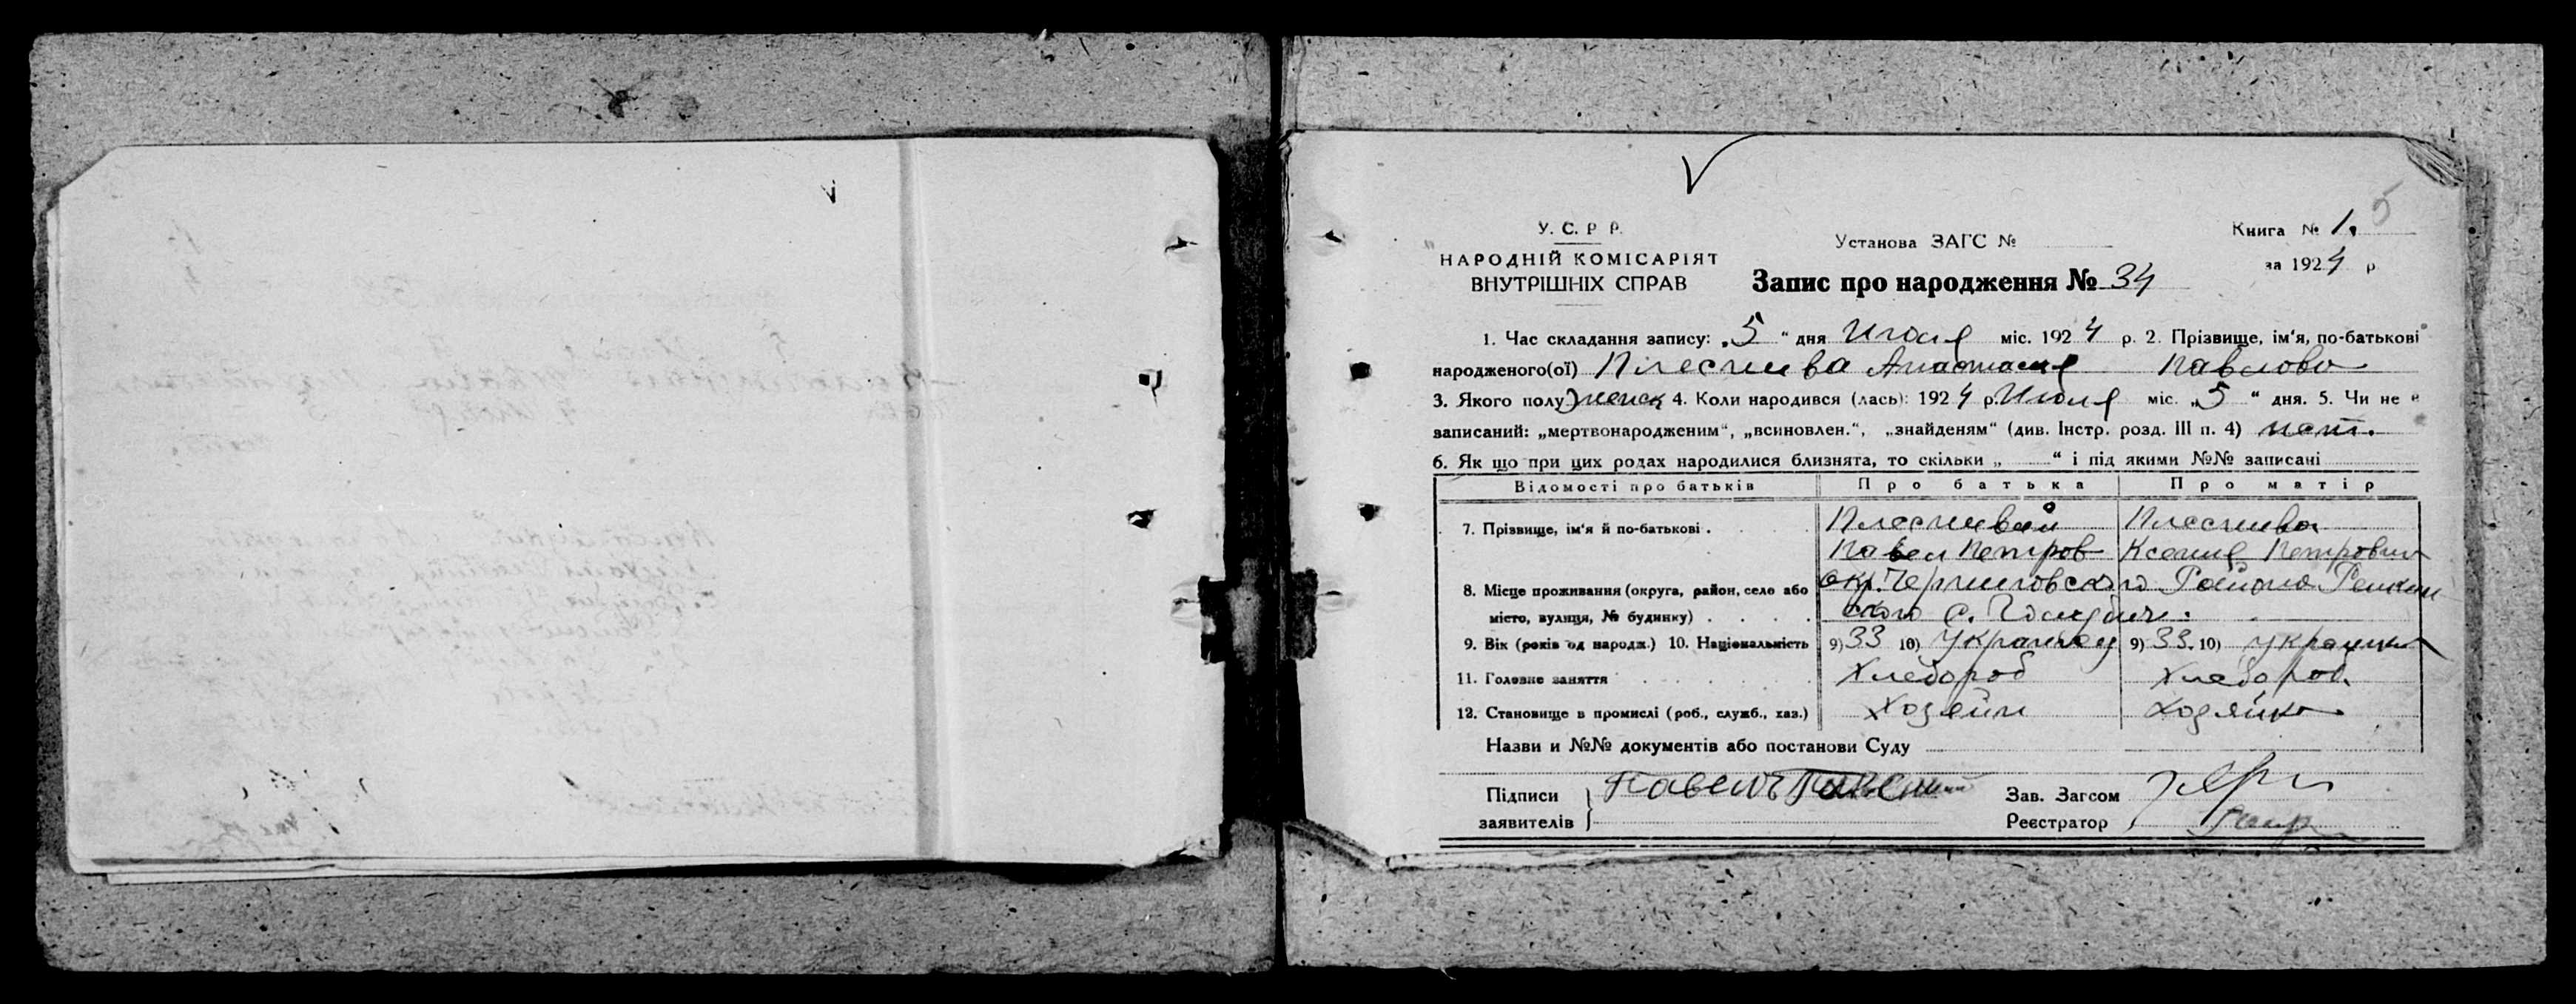 5
У. С. Р. Р.
НАРОДНІЙ КОМІСАРІЯТ
ВНУТРІШНІХ СПРАВ
Установа ЗАГС №
Книга № 1.
за 1924 р
Запис про народження № 34
1. Час складання запису: „5“ дня Июля міс. 1924 р. 2. Прізвище, ім‘я, по-батькові
народженого(ої) Плеснива Анастасия Павлова
3. Якого полу женск 4. Коли народився (лась): 1924 р. Июля міс. „5“ дня. 5. Чи не є
записаний: „мертвонародженим“, „всиновлен.“, „знайденям“ (див. Інстр. розд. III п. 4) нет.
6. Як що при цих родах народилися близнята, то скільки „ “ і під якими №№ записані
Відомості про батьків Про батька Про матір
7. Прізвище, ім‘я й по-батькові . Плеснивый Плеснива
Павел Петров Ксения Петровна
8. Місце проживання (округа, район, село або окр. Черниговского Района
місто, вулиця, № будинку) . . . . ского с.
9. Вік (років од народж.) 10. Національність 9) 33 10) Украинец 9) 33. 10) Украинка
11. Головне заняття Хлебороб Хлебороб.
12. Становище в промислі (роб., служб., хаз.) Хозяин Хозяйка
Назви и №№ документів або постанови Суду
Підписи заявителів Павелъ
Зав. Загсом
Реєстратор